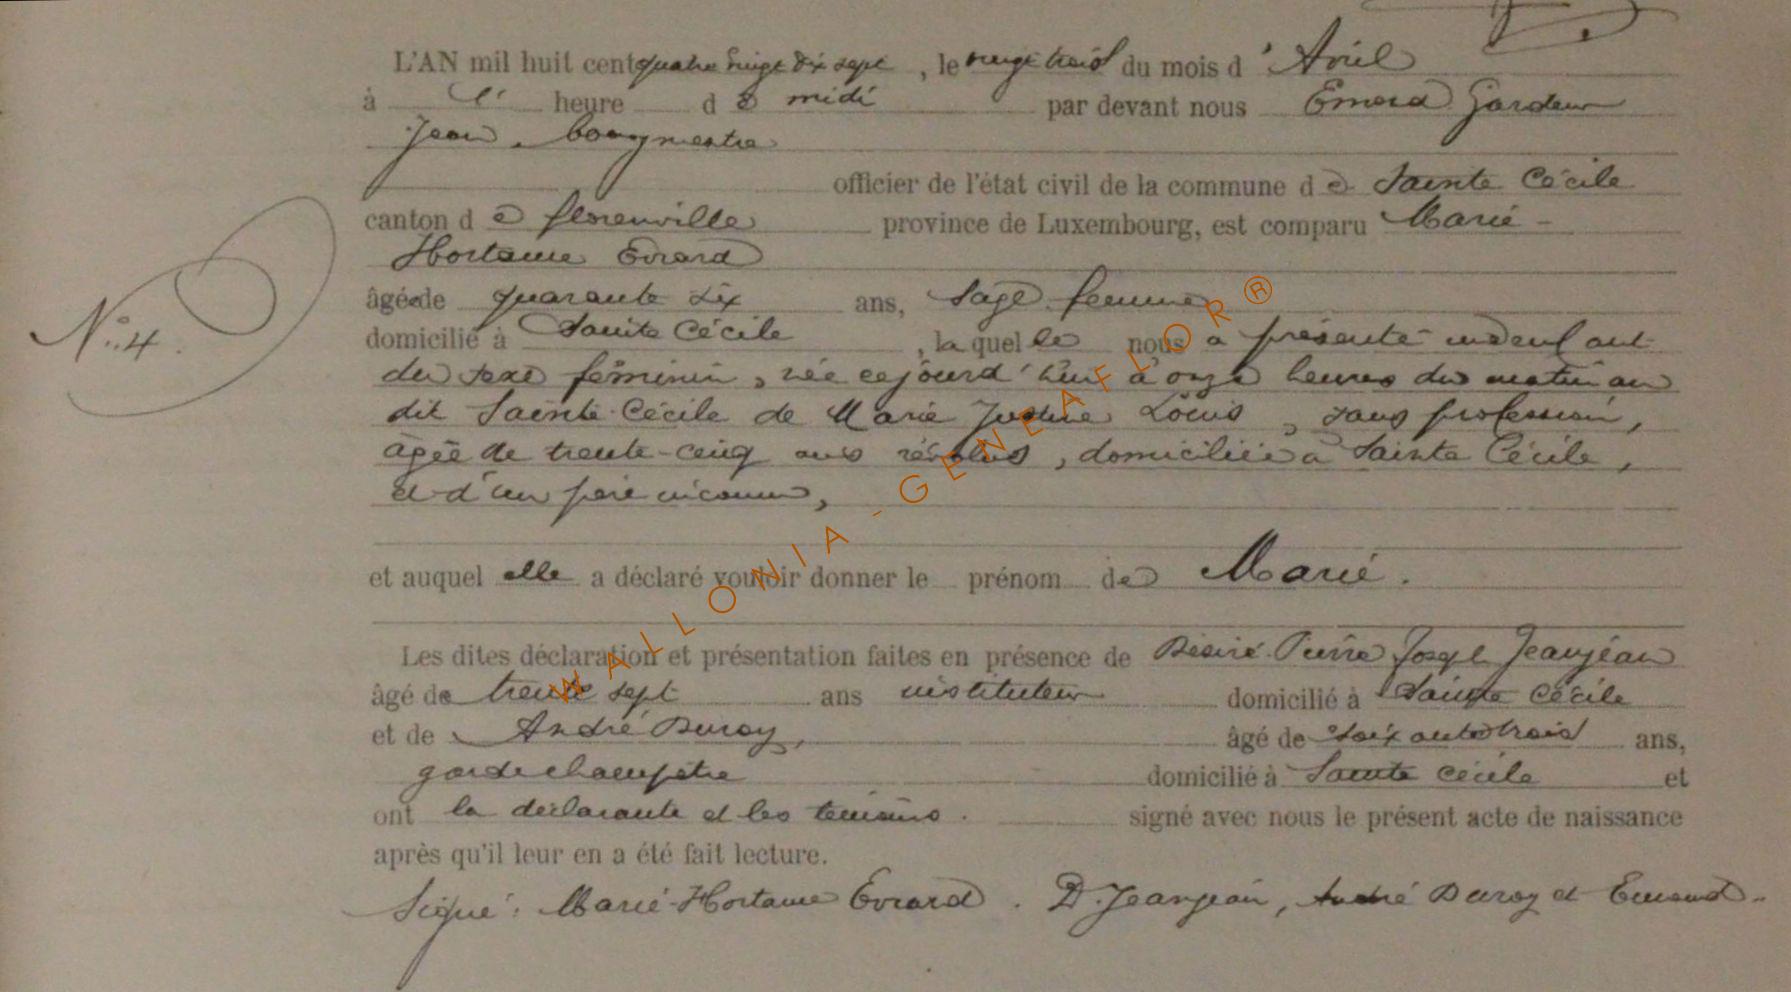 L'AN mil huit cent quatre vingt dix sept, le vingt trois du mois d'Avril
à l' heure de midi par devant nous Emond Gardeur
Jean, bourgmestre
officier de l'état civil de la commune de Sainte Cécile
canton de florenville province de Luxembourg, est comparu Marie-
Hortense Evrard
âgée de quarante six ans, Sage femme
domicilié à Sainte Cécile, la quelle nous a présenté un enfant
du sexe féminin, née cejourd'hui à onze heures du matin au
dit Sainte-Cécile de Marie Justine Louis, sans profession,
âgée de trente-cinq ans révolus, domiciliée à Sainte Cécile,
et d'un père inconnu,
et auquel elle a déclaré vouloir donner le prénom de Marie.
Les dites déclaration et présentation faites en présence de Désiré Pierre Joseph Jeanjean
âgé de trente sept ans instituteur domicilié à Sainte Cécile
et de André Duroy, âgé de soixante trois ans,
garde champêtre domicilié à Sainte Cécile et
ont la déclarante et les témoins. signé avec nous le présent acte de naissance
après qu'il leur en a été fait lecture.
Signé: Marie-Hortense Evrard. D. Jeanjean, André Duroy et Emond.
N° 4.
WALLONIA - GENEAFLOR®